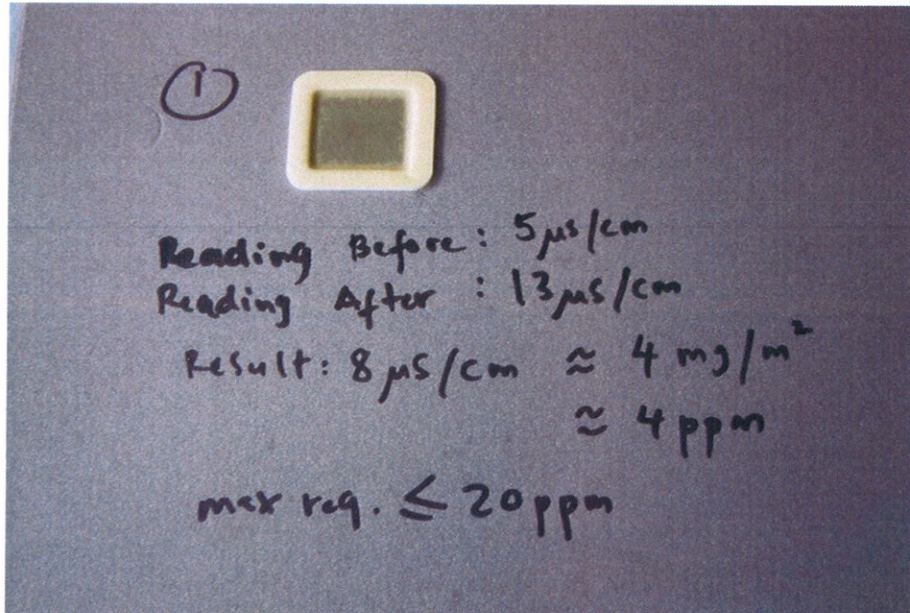 1
Reading Before: 5 µs/cm
Reading After : 13 µs/cm
Result: 8 µs/cm ≈ 4 mg/m²
≈ 4 ppm
max req. ≤ 20 ppm